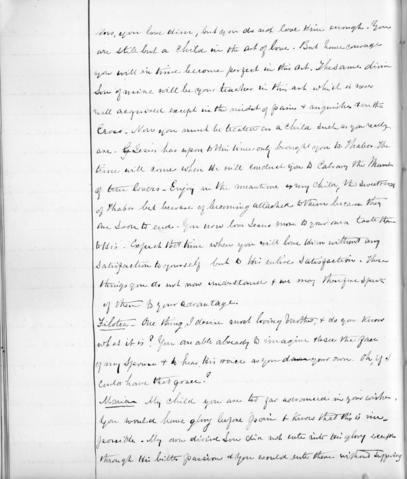 you love Him, but you do not love Him enough. You
are still but a child in the art of love. But have courage
you will in time become perfect in this art. The same divine
Son of mine will be your teacher in this art which is never
well acquired except in the midst of pains & anguishes & on the
Cross. Now you must be treated as a child such as you really
are. Jesus has upon to this time only brought you to Thabor. The
time will come when He will conduct you to Calvary the Mount
of true lovers. Enjoy in the meantime my Child, the sweetness
of Thabor but beware of becoming attached to them because they
are soon to end. You now love Jesus more to your own taste than
to His. Expect that time when you will love Him without any
satisfaction to yourself but to His entire satisfaction. These
things you do not now understand & we may therefore speak
of them to your advantage.
Filotea - One thing I desire most loving Mother, & do you know
what it is? You are able already to imagine it see the face
of my Spouse & to hear His voice as you your own. Oh, if I
could have that grace?
Maria - My child you are too far advanced in your wishes.
You would have glory before pain & know that this is im-
possible. My own divine Son did not enter into His glory except
through His bitter passion & you would enter there without